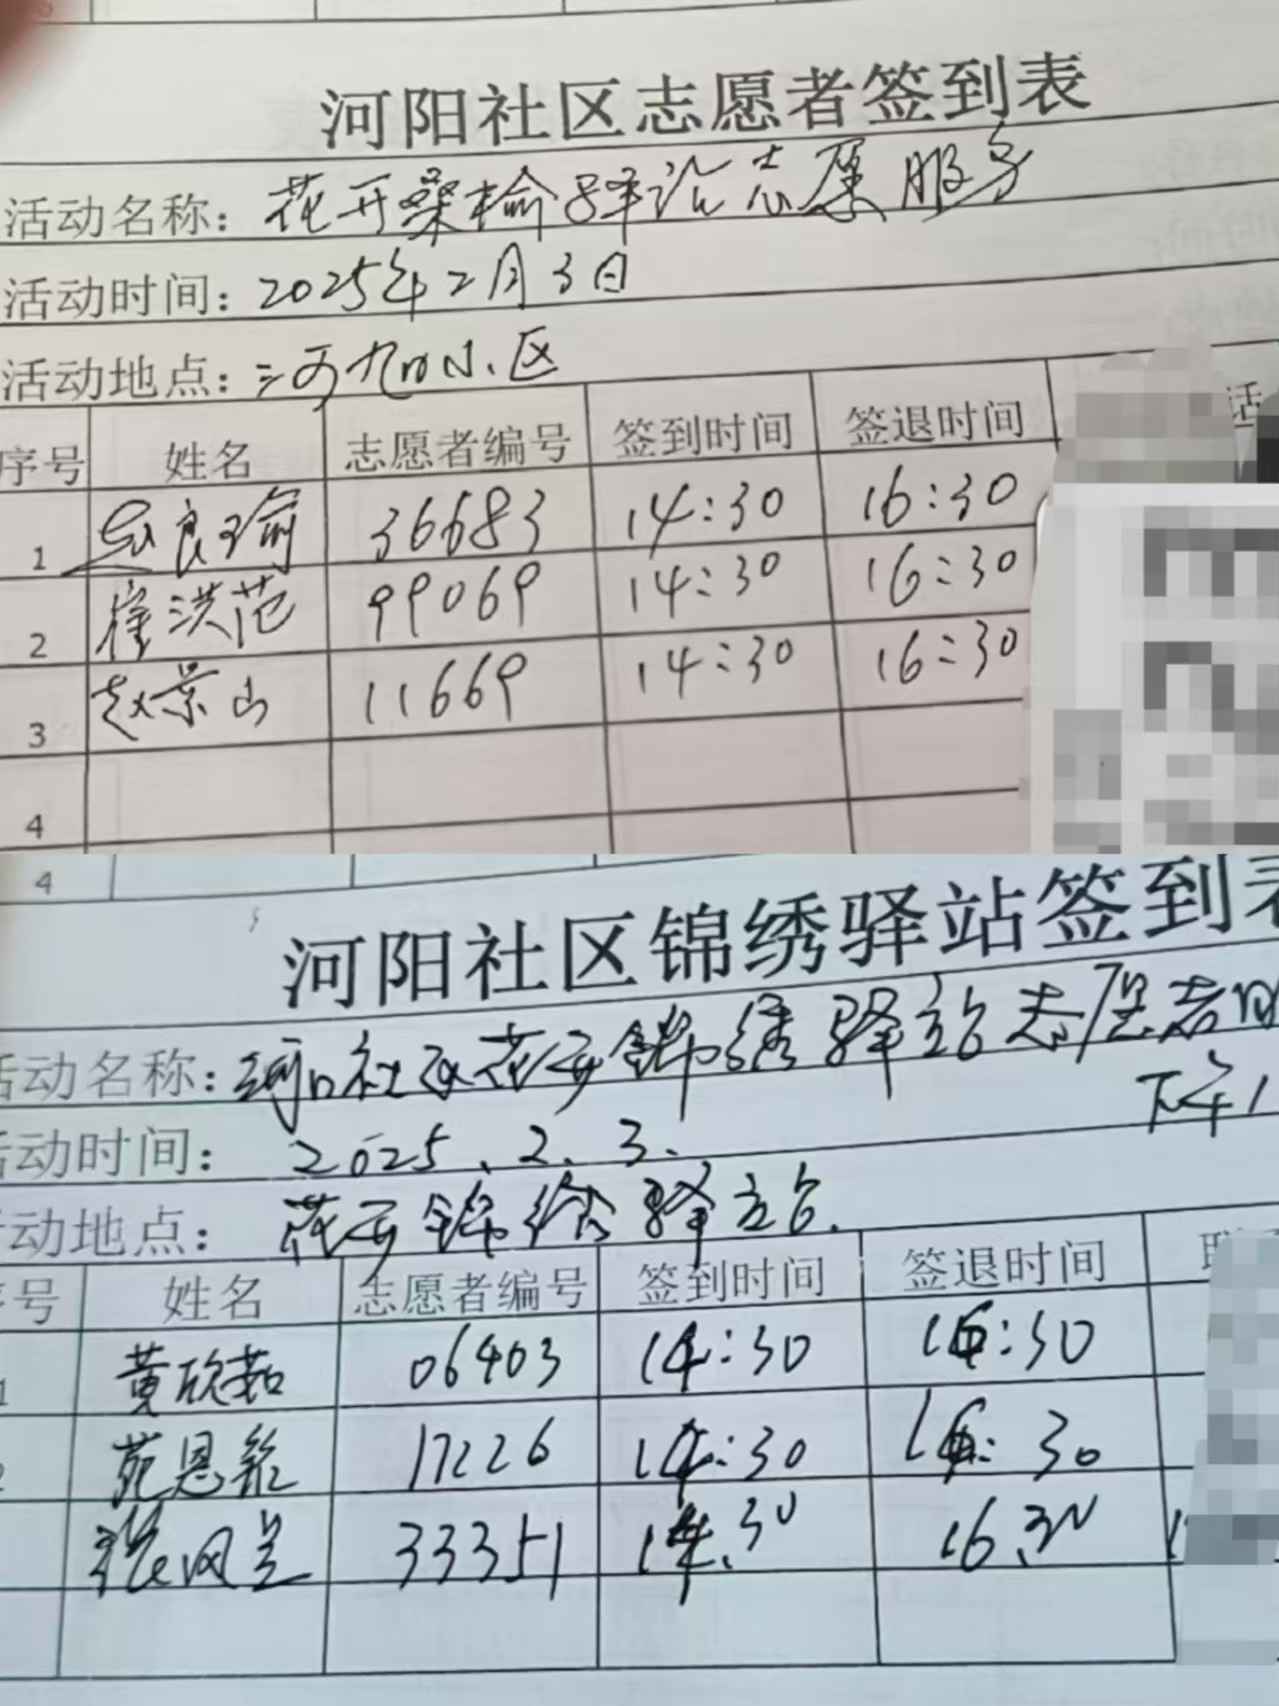 河阳社区志愿者签到表
活动名称：花开桑榆驿站志愿服务
活动时间：2025年2月3日
活动地点：河阳小区
序号 姓名 志愿者编号 签到时间 签退时间 活
1 良瑜 36683 14:30 16:30
2 崔洪范 99069 14:30 16:30
3 赵景山 11669 14:30 16:30
4
4
河阳社区锦绣驿站签到表
活动名称：河阳社区花开锦绣驿站志愿者
下午
活动时间：2025.2.3.
活动地点：花开锦绣驿站.
序号 姓名 志愿者编号 签到时间 签退时间
1 黄欣茹 06403 14:30 16:30
2 苑恩 17226 14:30 16:30
张风兰 33351 14.30 16.30